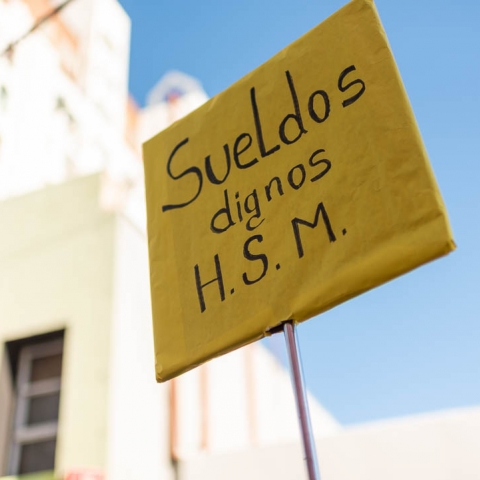 Sueldos
dignos
H.S.M.